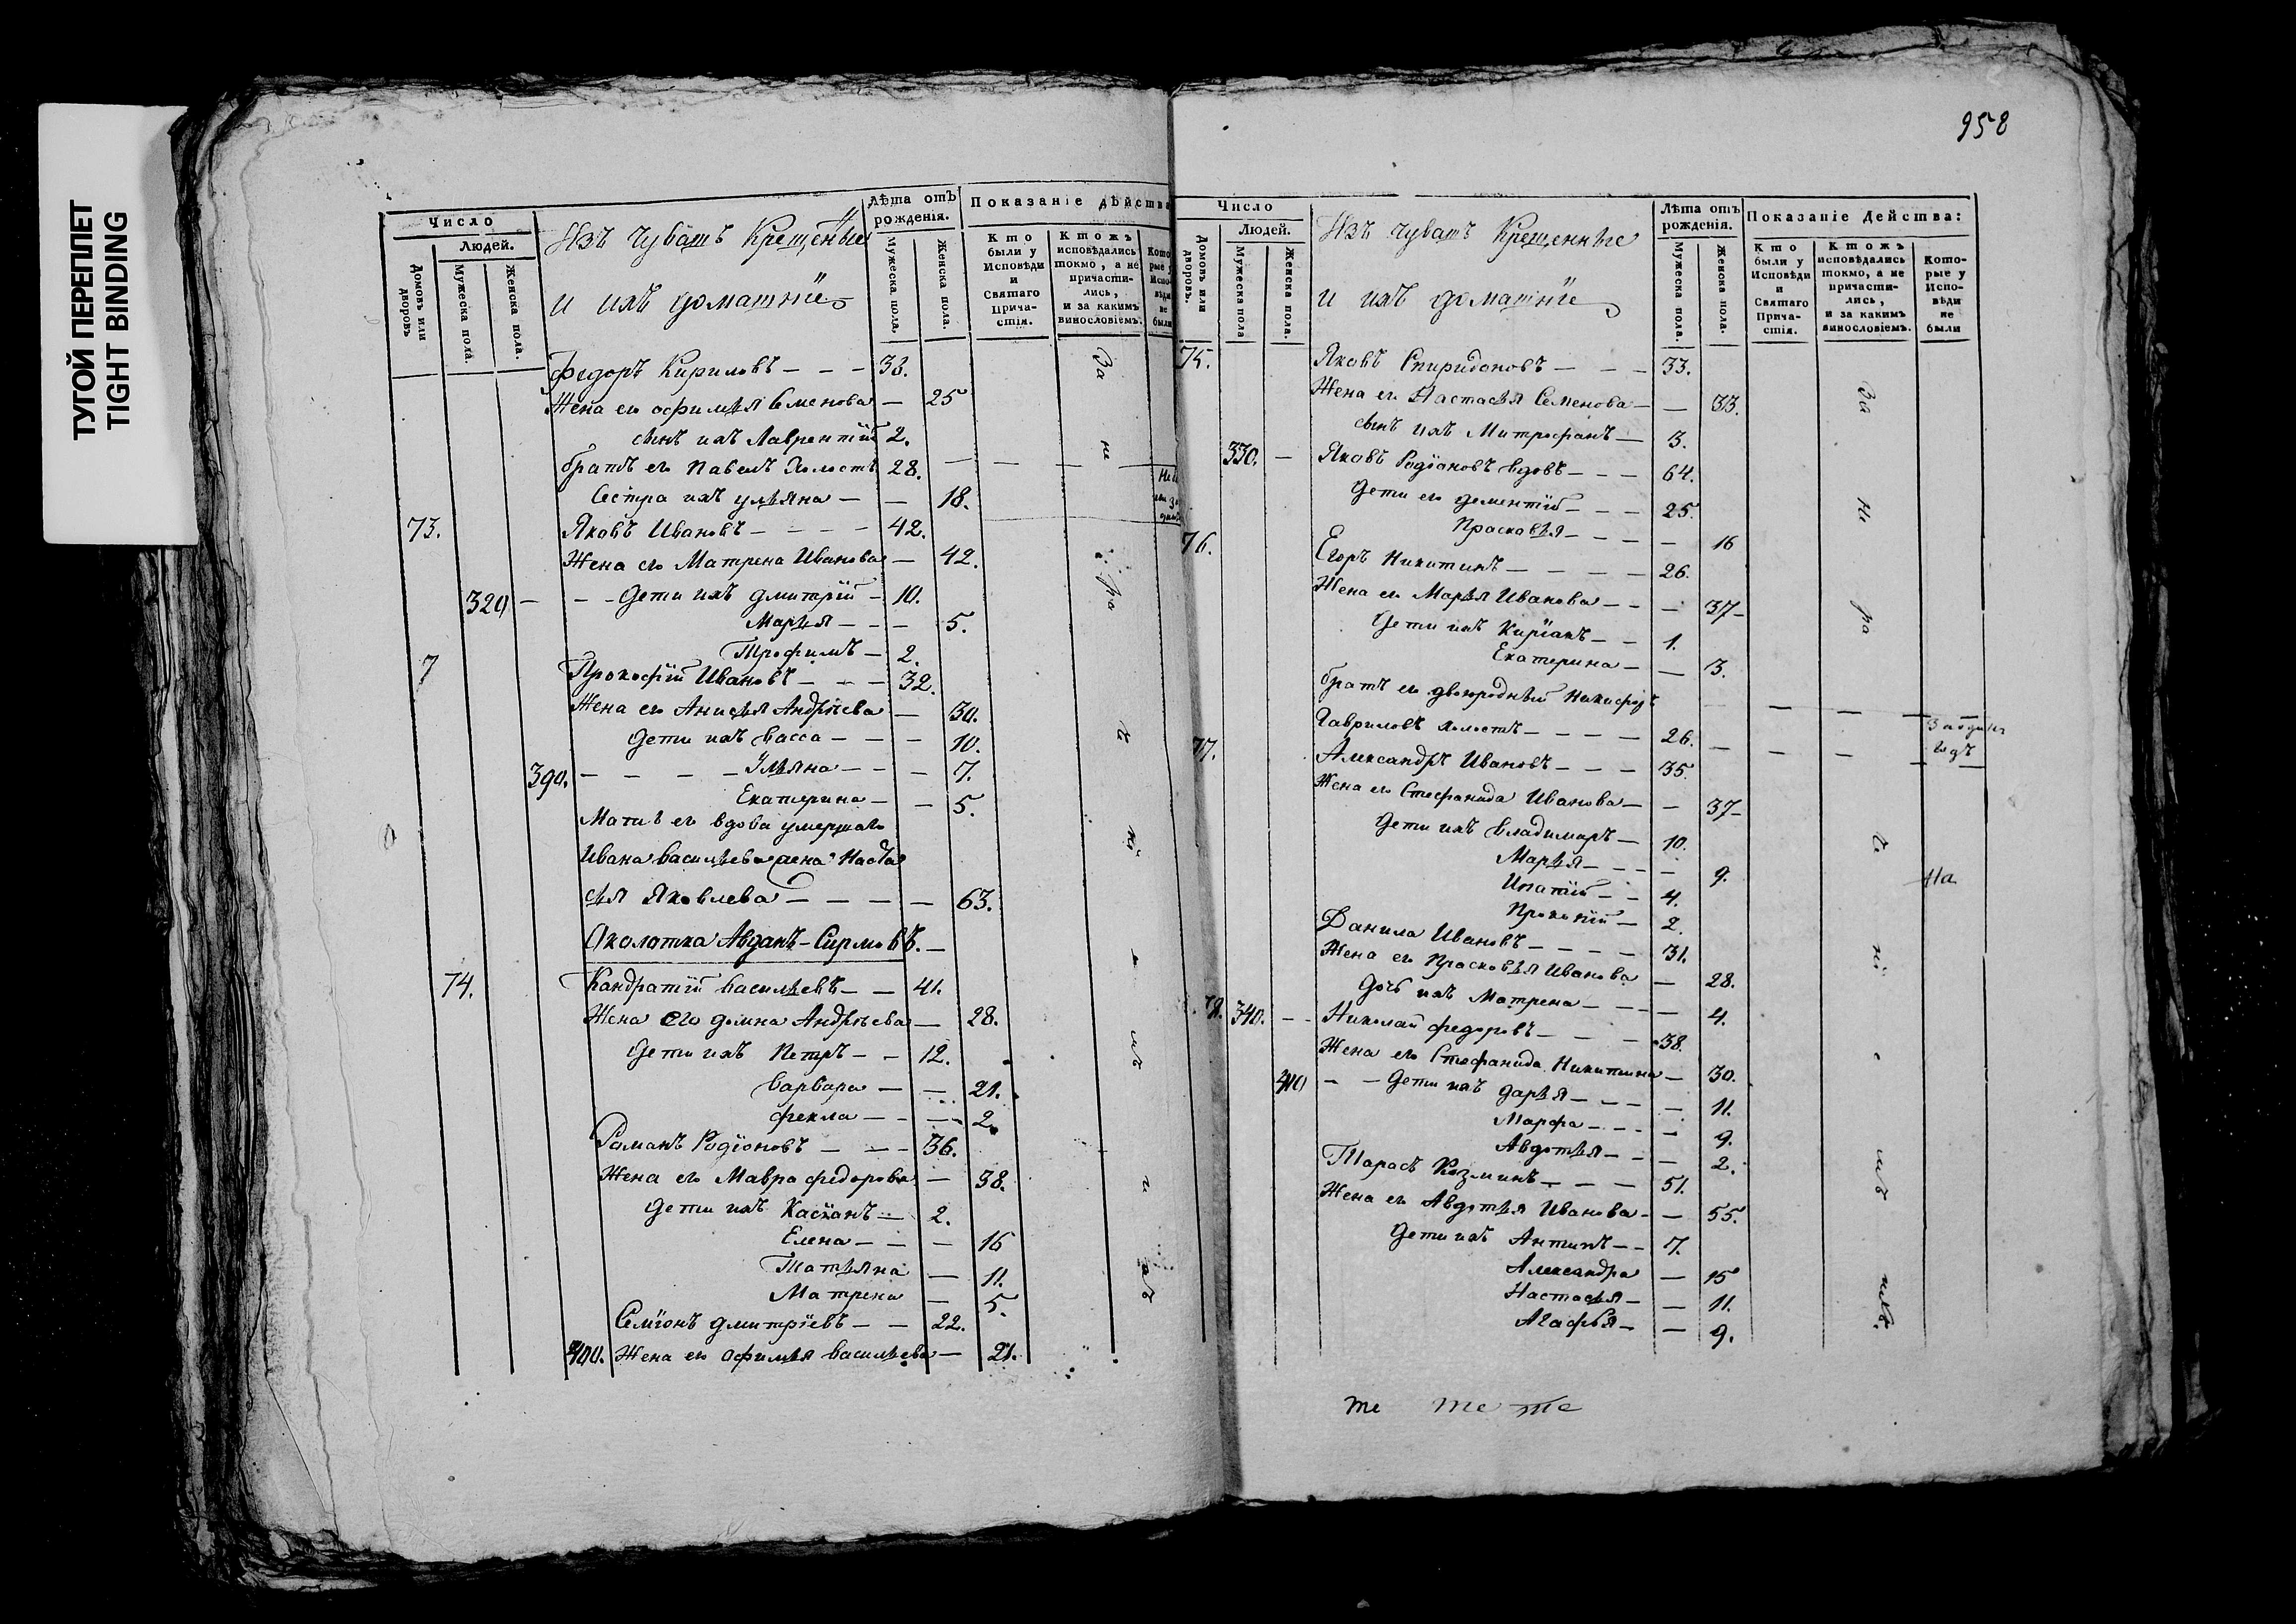 ТУГОЙ ПЕРЕПЛЕТ
TIGHT BINDING
Число
Людей.
Домовъ или дворовъ
Мужеска пола.
Женска пола.
Изъ чувашъ Крещеные
и ихъ домашніе
Лѣта отъ рожденія.
Мужеска пола.
Женска пола.
Показаніе дѣйства
Кто были у Исповѣди и Святаго Прича-стія.
Ктожъ исповѣдались токмо, а не причасти-лись, и за какимъ винословіемъ.
Кото-рые у Испо-вѣди не были
Федоръ Кириловъ — — — 33.
Жена его Офимья Семенова — 25
сынъ ихъ Лаврентій 2.
братъ его Павелъ Холостъ 28.
Сестра ихъ ульяна — — 18.
73. Яковъ Ивановъ — — — — 42.
Жена его Матрена Иванова — 42.
320 — — — Дети ихъ Дмитрій — 10.
Марья — — — 5.
Трофимъ — 2.
7 Прокофій Ивановъ — — — 32.
Жена его Анисья Андріева — 30.
Дети ихъ Васса — — — 10.
390. — — — — Ульяна — — — 7.
Екатерина — — 5.
Мать его вдова умершаго
Ивана Васильева жена Наста
сья Яковлева — — — — 63.
Околотка Авданъ-Сирмовъ. —
74. Кандратій Васильевъ — — 41.
Жена его домна Андріева — 28.
Дети ихъ Петръ — — 12.
Варвара — — 21.
Фекла — — — 2.
Романъ Родіоновъ — — — 36.
Жена его Мавра федорова — 38.
Дети ихъ Касіанъ — 2.
Елена — — — 16
Татьяна — 11.
Матрена — 5.
Семіонъ Дмитріевъ — — 22.
400. Жена его Офимья Васильева — 21.
За не ра че ні е мъ
958
Число
Людей.
Домовъ или дворовъ.
Мужеска пола
Женска пола.
Изъ чувашъ Крещенные
и ихъ домашніе
Лѣта отъ рожденія.
Мужеска пола.
Женска пола.
Показаніе Действа:
Кто были у Исповѣди и Святаго Прича-стія.
Ктожъ исповѣдались токмо, а не причасти-лись, и за какимъ винословіемъ.
Кото-рые у Испо-вѣди не были
75. Яковъ Спиридоновъ — — — 33.
Жена его Настасья Семенова — — 33.
сынъ ихъ Митрофанъ — 3.
330. — Яковъ Родіоновъ вдовъ — — — 64.
Дети его Дементій — — — 25.
Прасковья — — — — 16
76. Егоръ Никитинъ — — — — 26.
Жена его Марья Иванова — — — 37 —
Дети ихъ Киріакъ — — 1.
Екатерина — — 3.
братъ его двоюродный Никифоръ
Гавриловъ холостъ — — — — 26.
За одинъ годъ
77. Александръ Ивановъ — — — 35.
Жена его Стефанида Иванова — — 37 —
Дети ихъ Владимиръ — 10.
Марья — — — — 9.
Игнатій — — 4.
Прокопій — 2.
Данила Ивановъ — — — — 31.
Жена его Прасковья Иванова — 28.
Дочь ихъ Матрена — — — — 4.
78. 340. — — Николай федоровъ — — — 38.
Жена его Стефанида Никитина — 30.
410 — — Дети ихъ Дарья — — — — 11.
Марфа — — — — 9.
Авдотья — — — 2.
Тарасъ Козминъ — — — 51.
Жена его Авдотья Иванова — — 55.
Дети ихъ Антипъ — — 7.
Александра — 15
Настасья — — 11.
Агафья — — 9.
За не ра че ні
На
те те те